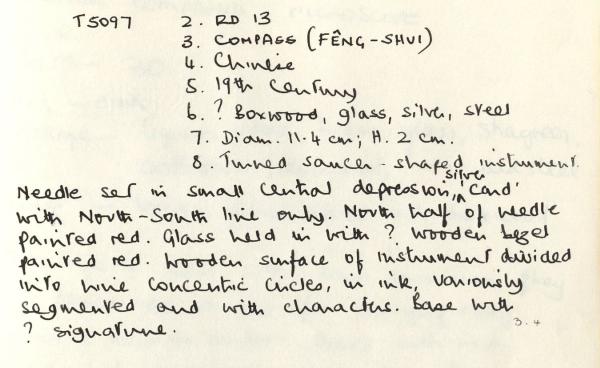 T5097 2. RD 13
3. COMPASS (FÊNG-SHUI)
4. Chinese
5. 19th Century
6. ? Boxwood, glass, silver, steel
7. Diam. 11.4 cm; H. 2 cm.
8. Turned saucer shaped instrument.
Needle set in small central depression, silver 'card'
with North-South line only. North half of needle
painted red. Glass held in with ? wooden bezel
painted red. Wooden surface of instrument divided
into nine concentric circles, in ink, variously
segmented and with characters. Base with
? signature.
3.4